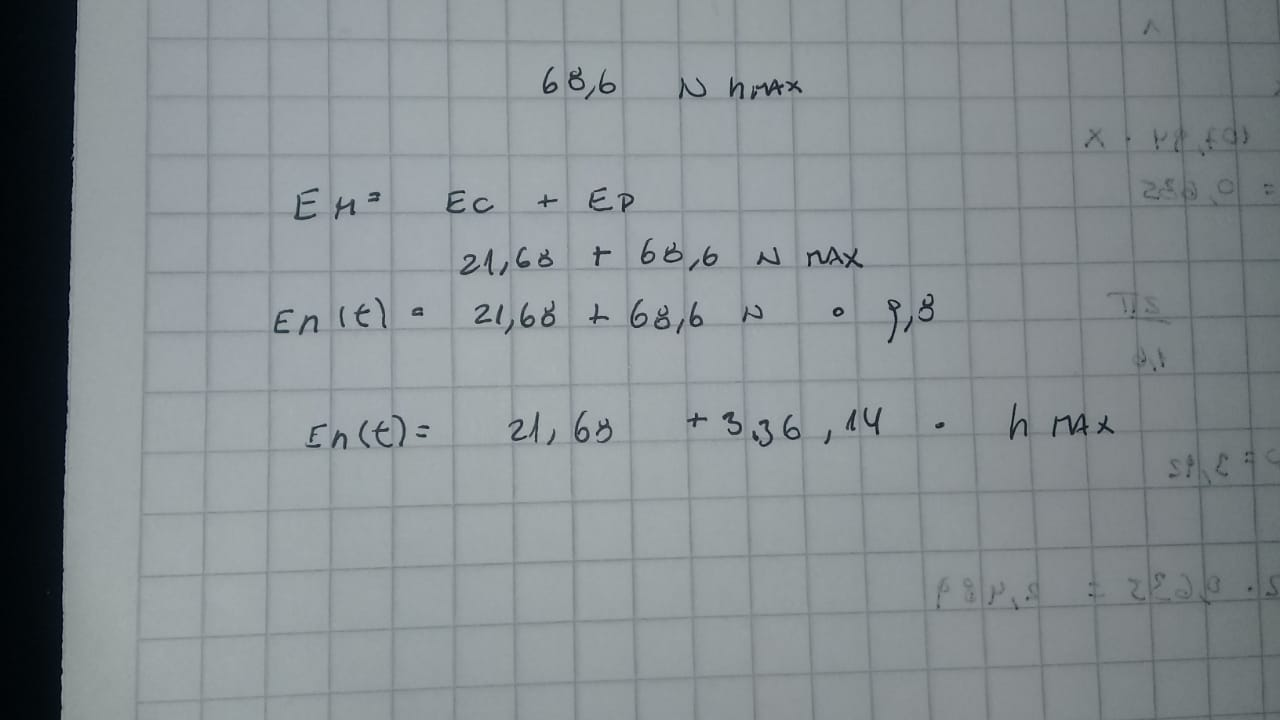 68,6 N hMAX
EM= EC + EP
21,68 + 68,6 N MAX
Em(t) = 21,68 + 68,6 N • 9,8
Em(t)= 21,68 + 3,36,14 • h MAX